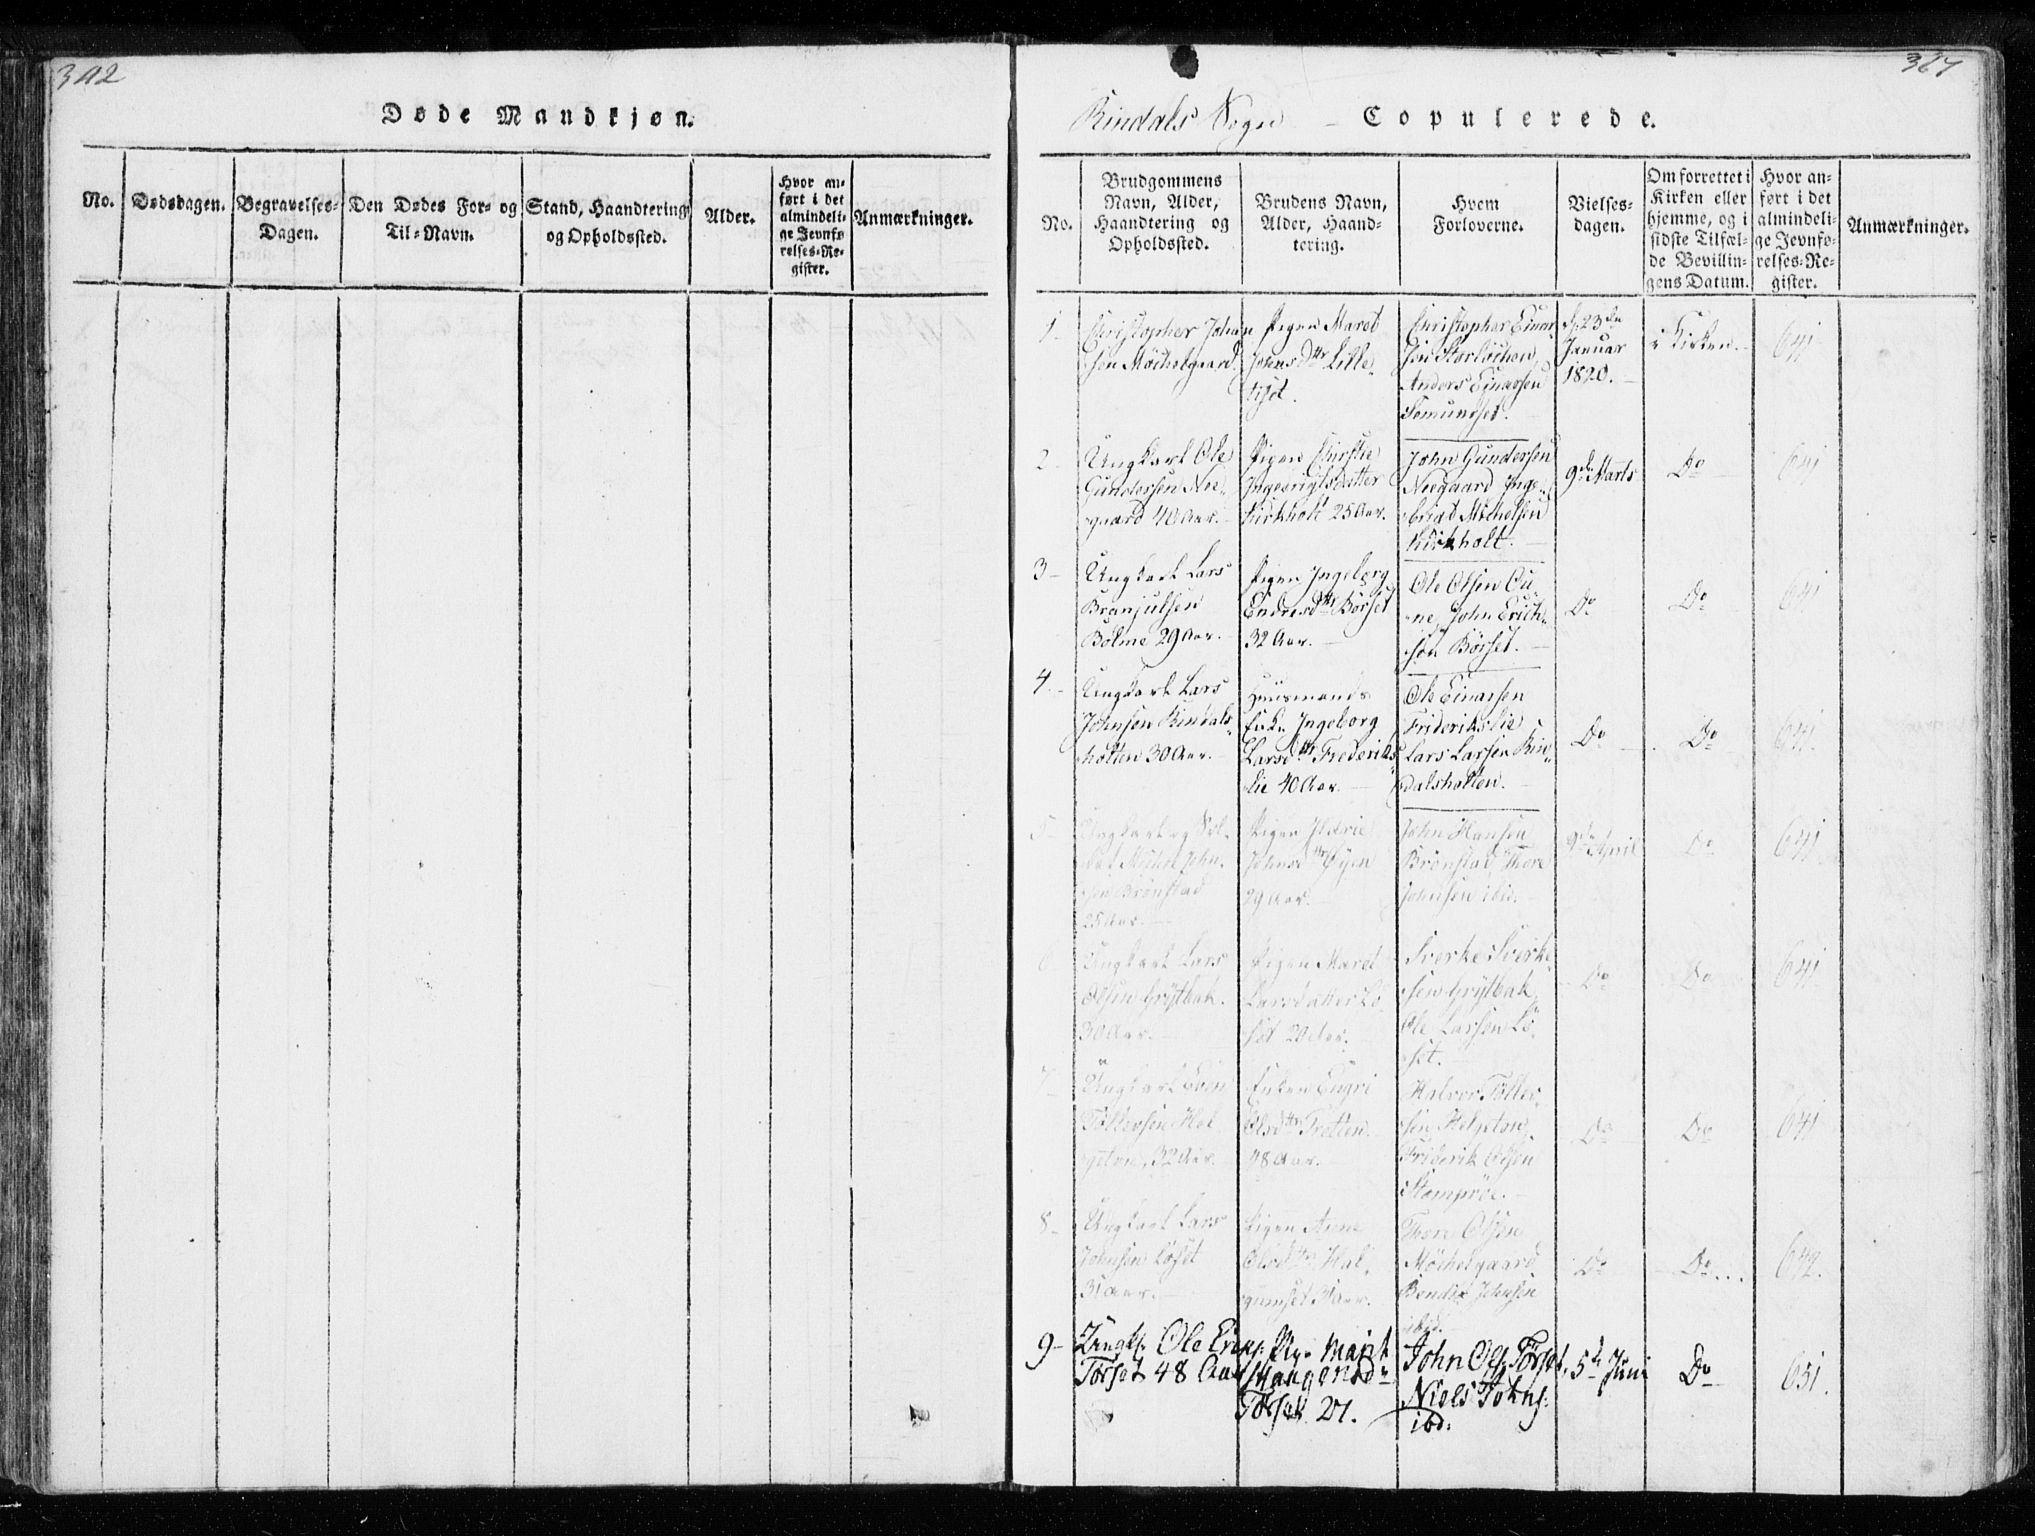 302
Døde Mandkjøn.
No.
Dødsdagen.
Begravelses-
Dagen.
Den Dødes For- og
Til-Navn.
Stand, Haandtering
og Opholdssted.
Alder.
Hvor an-
ført i det
almindeli-
ge Jevnfø-
relses-Re-
gister.
Anmærkninger.
327
Rindals Sogn - Copulerede.
No.
Brudgommens
Navn, Alder,
Haandtering og
Opholdssted.
Brudens Navn,
Alder, Haand-
tering.
Hvem
Forloverne.
Vielses-
dagen.
Om forrettet i
Kirken eller
hjemme, og i
sidste Tilfæl-
de Bevillin-
gens Datum.
Hvor an-
ført i det
almindeli-
ge Jevnfø-
relses-Re-
gister.
Anmærkninger.
1
Christopher Johan
sen Möchelgaard
Pigen Maret
Johnsdtr Lille
Christopher Einar
sen
Anders Einarsen
Somundset.
23de
Januar
1820.
i Kirken.
641
2
Ungkarl Ole
Gundersen Nee-
gaard 40 Aar.
Pigen Chirstie
Ingebrigtsdatter
Kirkholt 25 Aar.
John Gundersen
Neegaard Inge-
brigt Michelsen
Kirkholt.
9de Marts
Do
641
3
Ungkarl Lars
Brynjulsen
Bolme 29 Aar.
Pigen Ingeborg
Endresdtr Börset
32 Aar.
Ole Olsen Ou-
ne, John Erich-
sen Börset.
Do
Do
641
4
Ungkarl Lars
Johnsen Rindals-
holten 30 Aar.
Huusmands
Enke Ingeborg
Larsdtr Frederiks
lie 40 Aar.
Ole Einarsen
Friderikslie
Lars Larsen Rin-
dalsholten.
Do
Do
641.
5
Ungkarl og Sol-
dat Michel John-
sen Brönstad
25 Aar.
Pigen Ildrie
Johnsdtr Öyen
29 Aar.
John Hansen
Brönstad, Thore
Johnsen ibid.
9de April
Do
641
6
Ungkarl Lars
Olsen Grytbak.
30 Aar.
Pigen Maret
Larsdatter Lö-
set 20 Aar.
Sverke Sverke-
sen Grytbak,
Ole Larsen Lö-
set.
Do
Do
641
7
Ungkarl Even
Tollevsen Hel
geton, 32 Aar.
Enken Engri
Olsdtr Tretten
48 Aar.
Halvor Tollev-
sen Helgeton
Friderik Olsen
Stomprøe.
Do
Do
641
8
Ungkarl Lars
Johnsen Löset
31 Aar.
Pigen Anne
Olsdtr Hal-
gumset 31 Aar.
Thore Olsen
Möchelgaard
Bendix Johnsen
ibid.
Do
Do
642.
9
Ungk. Ole Eriks.
Torset 48 Aar
Pig. Marit
Mangensdr
Torset 27.
John Ols. Törset,
Niels Johns:
ibd.
5te Juni
Do
651.